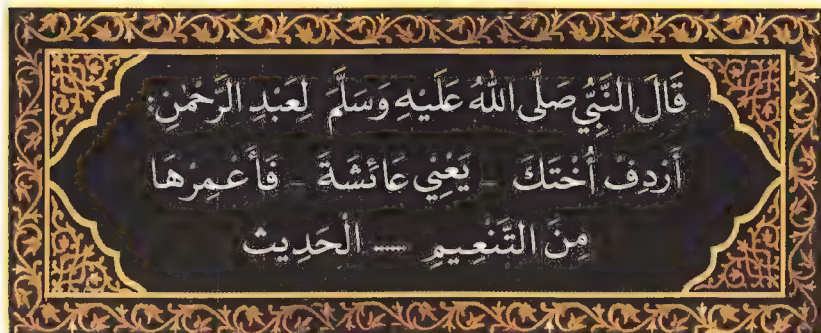 قَالَ النَّبِيُّ صَلَّى اللهُ عَلَيْهِ وَسَلَّمَ لِعَبْدِ الرَّحْمٰنِ:
أَرْدِفْ أُخْتَكَ - يَعْنِي عَائِشَةَ - فَأَعْمِرْهَا
مِنَ التَّنْعِيمِ — الْحَدِيث